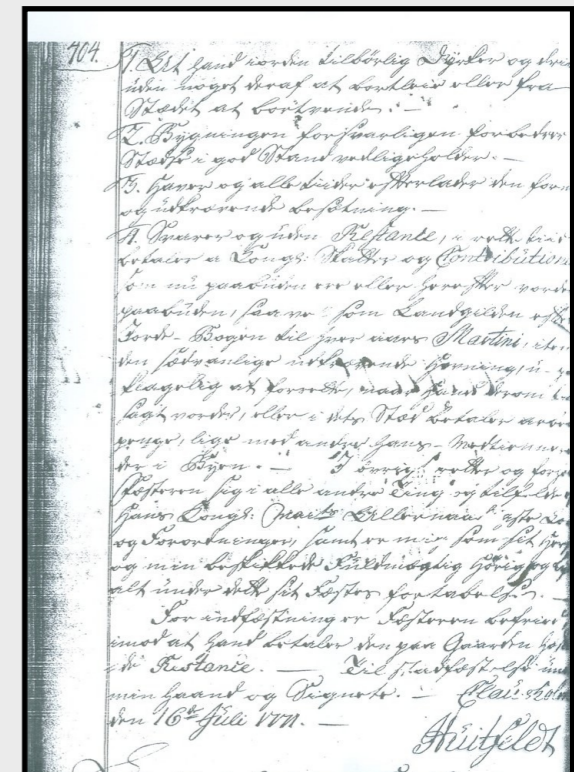 404.
1. At hand iorden tilbørlig Dyrker og dri
uden noget deraf at bortleie eller fra
Stædet at bortvende. —
2. Bygningen forsvarligen forbedrer
Stædse i god Stand vedligeholder. —
3. Haver og alle tiider efterlader den forn
og udkrævende besætning. —
4. Svarer og uden Restantz, i rette tiid
betaler a Kongl: Skatter og Contributioner
som nu paabuden ere eller herefter vorde
paabuden, saa vel som Landgilden efter
Jorde-Bogen til hver aars Martini, item
den sædvanlige Hovning, u-
klagelig at forrette, naar hand derom til
sagt vorder, eller i dets Stæd betaler
penge, lige med andre hans Medtiennere
der i Byen. — I øvrigt retter og for
fæsteren sig i alle andre Ting og tilfælde
Hans Kongl: Maits Allernaadigste Lo
og Forordninger, samt er mig som sit Her
og min beskikkede Fuldmægtig hørig og ly
alt under dette sit Fæstes fortabelse. —
For indfæstning er Fæsteren befriet
imod at hand betaler den paa Gaarden
de Restance. — Til Stadfæstelse under
min Haand og Signete. — Clausholm
den 16de Juli 1771. —
Huitfeldt